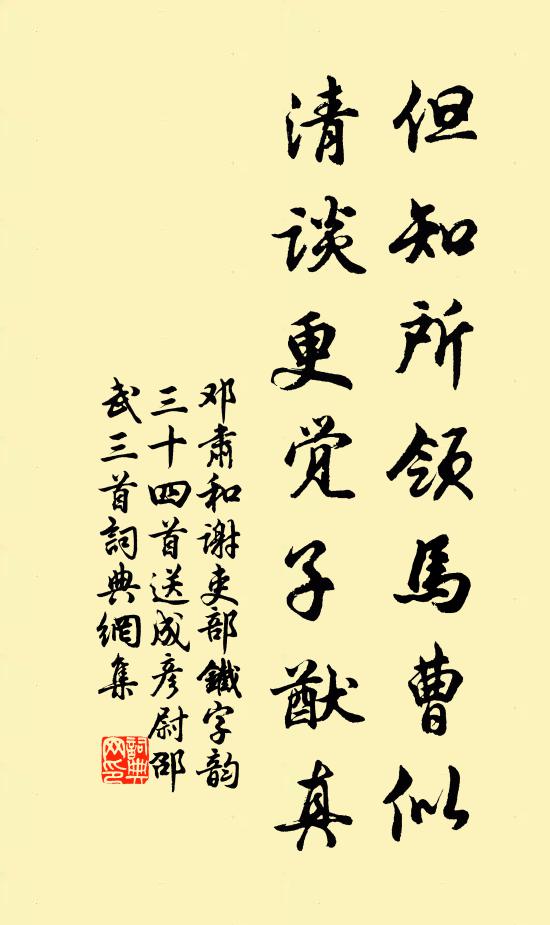 但知所领馬曹似
清谈更觉子猷真
邓肃和谢吏部鐵字韵
三十四首送成彦尉邵
武三首詞典網集
詞典
网印